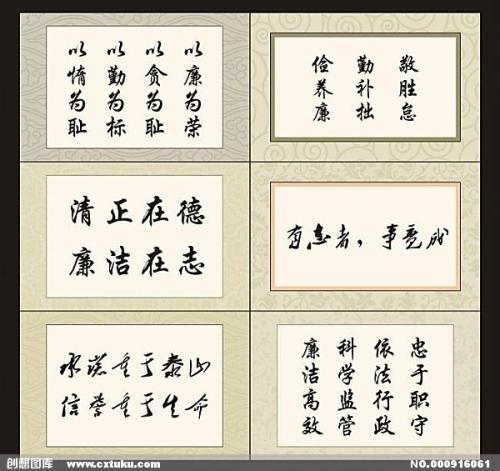 以廉为荣
以贪为耻
以勤为标
以惰为耻
敬胜怠
勤补拙
俭养廉
清正在德
廉洁在志
有志者，事竟成
承诺重于泰山
信誉重于生命
忠于职守
依法行政
科学监管
廉洁高效
创想图库 www.cxtuku.com
NO.000916061